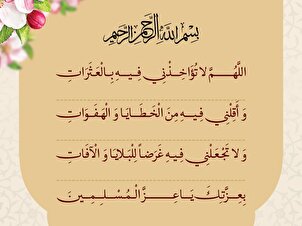 بِسْمِ اللَّهِ الرَّحْمَٰنِ الرَّحِيمِ
اللَّهُمَّ لا تُؤَاخِذْنِي فِيهِ بِالْعَثَرَاتِ
وَ أَقِلْنِي فِيهِ مِنَ الْخَطَايَا وَ الْهَفَوَاتِ
وَ لا تَجْعَلْنِي فِيهِ غَرَضاً لِلْبَلايَا وَ الْآفَاتِ
بِعِزَّتِكَ يَا عِزَّ الْمُسْلِمِينَ